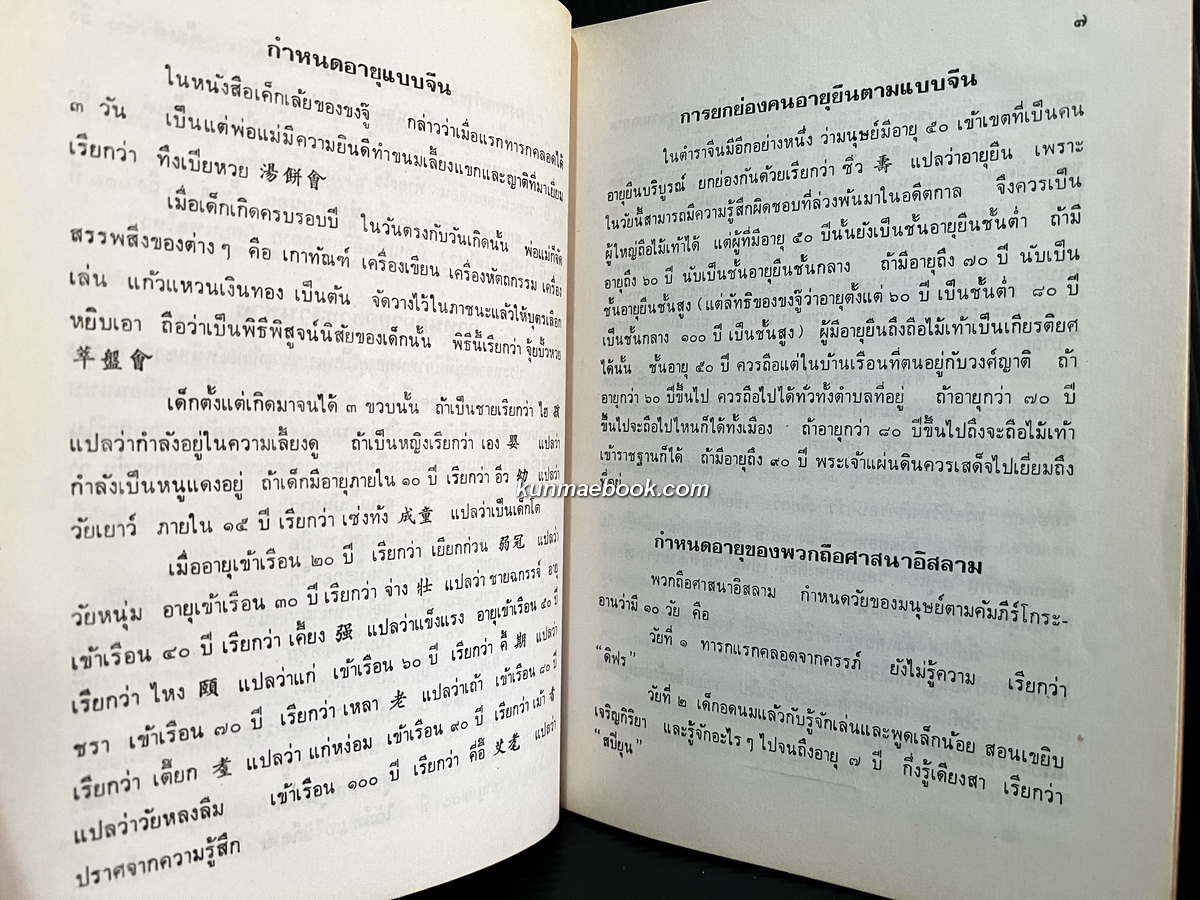 กำหนดอายุแบบจีน
ในหนังสือเค็กเล้ยของขงจู๊ กล่าวว่าเมื่อแรกทารกคลอดได้
๓ วัน เป็นแต่พ่อแม่มีความยินดีทำขนมเลี้ยงแขกและญาติที่มาเยี่ยม
เรียกว่า ทึงเปียหวย 湯餅會
เมื่อเด็กเกิดครบรอบปี ในวันตรงกับวันเกิดนั้น พ่อแม่ก็จัด
สรรพสิ่งของต่าง ๆ คือ เกาทัณฑ์ เครื่องเขียน เครื่องหัตถกรรม เครื่อง
เล่น แก้วแหวนเงินทอง เป็นต้น จัดวางไว้ในภาชนะแล้วให้บุตรเลือก
หยิบเอา ถือว่าเป็นพิธีพิสูจน์นิสัยของเด็กนั้น พิธีนี้เรียกว่า จุ้ยบั๊วหวย
萃盤會
เด็กตั้งแต่เกิดมาจนได้ ๓ ขวบนั้น ถ้าเป็นชายเรียกว่า ไฮ
แปลว่ากำลังอยู่ในความเลี้ยงดู ถ้าเป็นหญิงเรียกว่า เอง 嬰 แปลว่า
กำลังเป็นหนูแดงอยู่ ถ้าเด็กมีอายุภายใน ๑๐ ปี เรียกว่า อิ๋ว 幼 แปลว่า
วัยเยาว์ ภายใน ๑๕ ปี เรียกว่า เซ่งทั้ง 成童 แปลว่าเป็นเด็กโต
เมื่ออายุเข้าเรือน ๒๐ ปี เรียกว่า เยียกก่วน 弱冠 แปลว่า
วัยหนุ่ม อายุเข้าเรือน ๓๐ ปี เรียกว่า จ่าง 壯 แปลว่า ชายฉกรรจ์ อายุ
เข้าเรือน ๔๐ ปี เรียกว่า เคี้ยง 强 แปลว่าแข็งแรง อายุเข้าเรือน ๕๐ ปี
เรียกว่า ไหง 頤 แปลว่าแก่ เข้าเรือน ๖๐ ปี เรียกว่า คี้ 期 แปลว่า
ชรา เข้าเรือน ๗๐ ปี เรียกว่า เหลา 老 แปลว่าเถ้า เข้าเรือน ๘๐ ปี
เรียกว่า เตี๊ยก 耋 แปลว่า แก่หง่อม เข้าเรือน ๙๐ ปี เรียกว่า เม้า
แปลว่าวัยหลงลืม เข้าเรือน ๑๐๐ ปี เรียกว่า คี่อี๊ แปลว่า
ปราศจากความรู้สึก
๗
การยกย่องคนอายุยืนตามแบบจีน
ในตำราจีนมีอีกอย่างหนึ่ง ว่ามนุษย์มีอายุ ๕๐ เข้าเขตที่เป็นคน
อายุยืนบริบูรณ์ ยกย่องกันด้วยเรียกว่า ซิ่ว 壽 แปลว่าอายุยืน เพราะ
ในวัยนี้สามารถมีความรู้สึกผิดชอบที่ล่วงพ้นมาในอดีตกาล จึงควรเป็น
ผู้ใหญ่ถือไม้เท้าได้ แต่ผู้ที่มีอายุ ๕๐ ปีนั้นยังเป็นชั้นอายุยืนชั้นต่ำ ถ้ามี
อายุถึง ๖๐ ปี นับเป็นชั้นอายุยืนชั้นกลาง ถ้ามีอายุถึง ๗๐ ปี นับเป็น
ชั้นอายุยืนชั้นสูง (แต่ลัทธิของขงจู๊ว่าอายุตั้งแต่ ๖๐ ปี เป็นชั้นต่ำ ๘๐ ปี
เป็นชั้นกลาง ๑๐๐ ปี เป็นชั้นสูง) ผู้มีอายุยืนถึงถือไม้เท้าเป็นเกียรติยศ
ได้นั้น ชั้นอายุ ๕๐ ปี ควรถือแต่ในบ้านเรือนที่ตนอยู่กับวงศ์ญาติ ถ้า
อายุกว่า ๖๐ ปีขึ้นไป ควรถือไปได้ทั่วทั้งตำบลที่อยู่ ถ้าอายุกว่า ๗๐ ปี
ขึ้นไปจะถือไปไหนก็ได้ทั้งเมือง ถ้าอายุกว่า ๘๐ ปีขึ้นไปถึงจะถือไม้เท้า
เข้าราชฐานก็ได้ ถ้ามีอายุถึง ๙๐ ปี พระเจ้าแผ่นดินควรเสด็จไปเยี่ยมถึง
ที่อยู่
kunmaebook.com
กำหนดอายุของพวกถือศาสนาอิสลาม
พวกถือศาสนาอิสลาม กำหนดวัยของมนุษย์ตามคัมภีร์โกระ-
อานว่ามี ๑๐ วัย คือ
วัยที่ ๑ ทารกแรกคลอดจากครรภ์ ยังไม่รู้ความ เรียกว่า
“ดิฟร”
วัยที่ ๒ เด็กอดนมแล้วกับรู้จักเล่นและพูดเล็กน้อย สอนเขยิบ
เจริญกิริยา และรู้จักอะไร ๆ ไปจนถึงอายุ ๗ ปี กึ่งรู้เดียงสา เรียกว่า
“สปียุน”